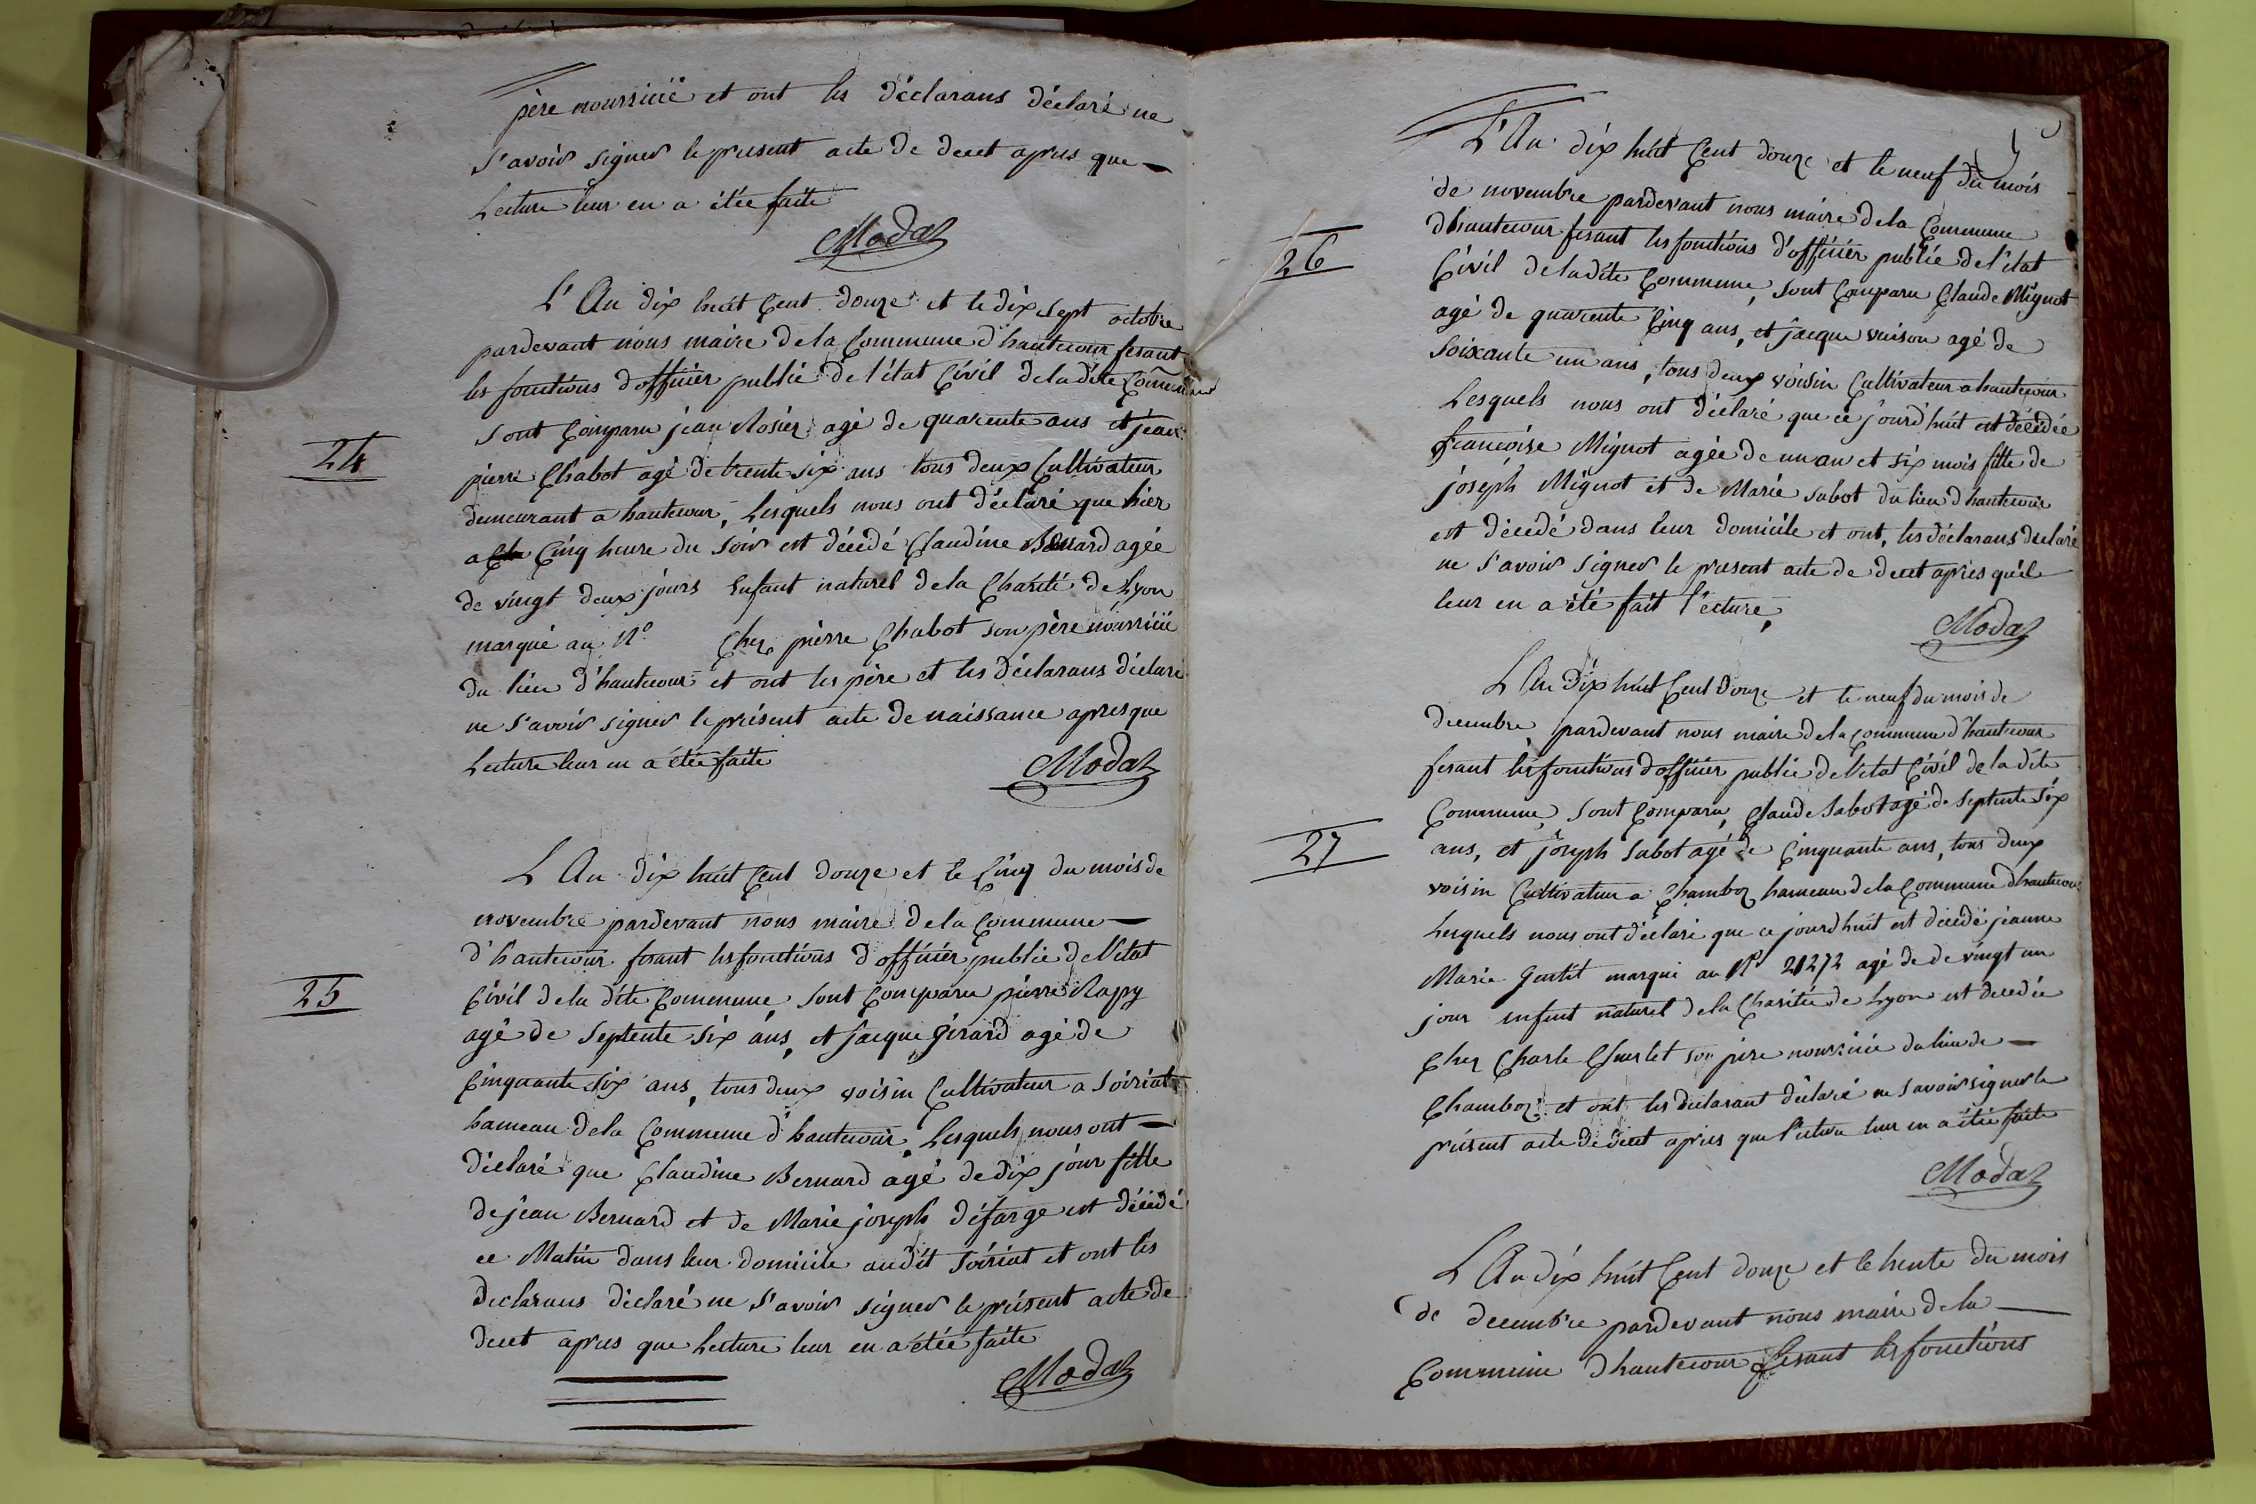 père nourricié et ont les déclarans déclaré ne
s'avoir signer le present acte de decet apres que
Lecture leur en a étée faite
Modaz
24
L'An dix huit Cent douze et le dix sept octobre
pardevant nous maire de la Commune d'hautecour fesant
les fonctions d'officier public de l'état Civil de la dite Commune
sont Comparu jean Rosier agé de quarente ans et jean
pierre Chabot agé de trente six ans tous deux Cultivateur
demeurant a hautecour, Lesquels nous ont déclaré que hier
a Cinq heure du soir est décédé Claudine agée
de vingt deux jours Enfant naturel de la Charité de Lyon
marqué au N° Chez pierre Chabot son père nourricié
du lieu d'hautecour et ont les père et les déclarans déclaré
ne s'avoir signer le présent acte de naissance apres que
Lecture leur en a étée faite
Modaz
25
L'An dix huit Cent douze et le Cinq du mois de
novembre pardevant nous maire de la Commune
d'hautecour fesant les fonctions d'officier public de l'état
Civil de la dite Commune, sont Comparu pierre Rapy
agé de septente six ans, et jacque Girard agé de
Cinquante six ans, tous deux voisin Cultivateur a Soiriat
hameau de la Commune d'hautecour, Lesquels nous ont
déclaré que Claudine Bernard agé de dix jour fille
de jean Bernard et de Marie joseph défarge est décédé
ce Matin dans leur domicile au dit Soiriat et ont les
declarans déclaré ne s'avoir signer le présent acte de
decet apres que Lecture leur en a étée faite
Modaz
26
L'An dix huit Cent douze et le neuf du mois
de novembre pardevant nous maire de la Commune
dhautecour fesant les fonctions d'officier public de l'état
Civil de la dite Commune, sont Comparu Claude Mignot
agé de quarente Cinq ans, et jacque vuison agé de
soixante un ans, tous deux voisin Cultivateur a hautecour
Lesquels nous ont déclaré que ce jourd'huit est décédée
françoise Mignot agée de un an et six mois fille de
joseph Mignot et de Marie sabot du lieu d'hautecour
est décédé dans leur domicile et ont, les déclarans declaré
ne s'avoir signer le present acte de decet apres quele
leur en a été fait l'ecture,
Modaz
27
L'An dix huit Cent Douze et le neuf du mois de
decembre pardevant nous maire de la Commune d'hautecour
fesant les fonctions d'officier public de l'etat Civil de la dite
Commune, sont Comparu, Claude Sabot agé de septente six
ans, et joseph sabot agé de Cinquante ans, tous deux
voisin Cultivateur a Chamboz hameau de la Commune dhautecour
Lesquels nous ont déclaré que ce jourdhuit est décédé jeanne
Marie Gentit marqué au N° 21272 agé de de vingt un
jour enfent naturel de la Charitée de Lyon est decedée
Chez Charle son père nourricié du lieu de
Chamboz et ont les declarant déclaré ne savoir signer le
présent acte de decet apres que l'ecture leur en a étée faite
Modaz
L'An dix huit Cent douze et le trente du mois
de decembre pardevant nous maire de la
Commune dhautecour fesant les fonctions